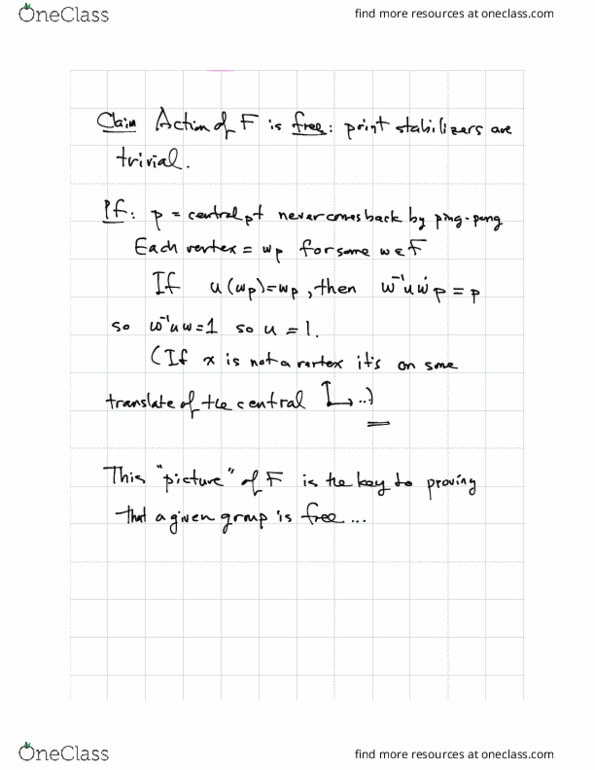 OneClass
find more resources at oneclass.com
Claim Action of F is free: point stabilizers are
trivial.
Pf: p = central pt never comes back by ping-pong
Each vertex = wp for some w ∈ F
If u(wp)=wp, then w⁻¹uwp = p
so w⁻¹uw=1 so u = 1.
(If x is not a vertex it's on some
translate of the central ...)
This "picture" of F is the key to proving
that a given group is free ...
OneClass
find more resources at oneclass.com